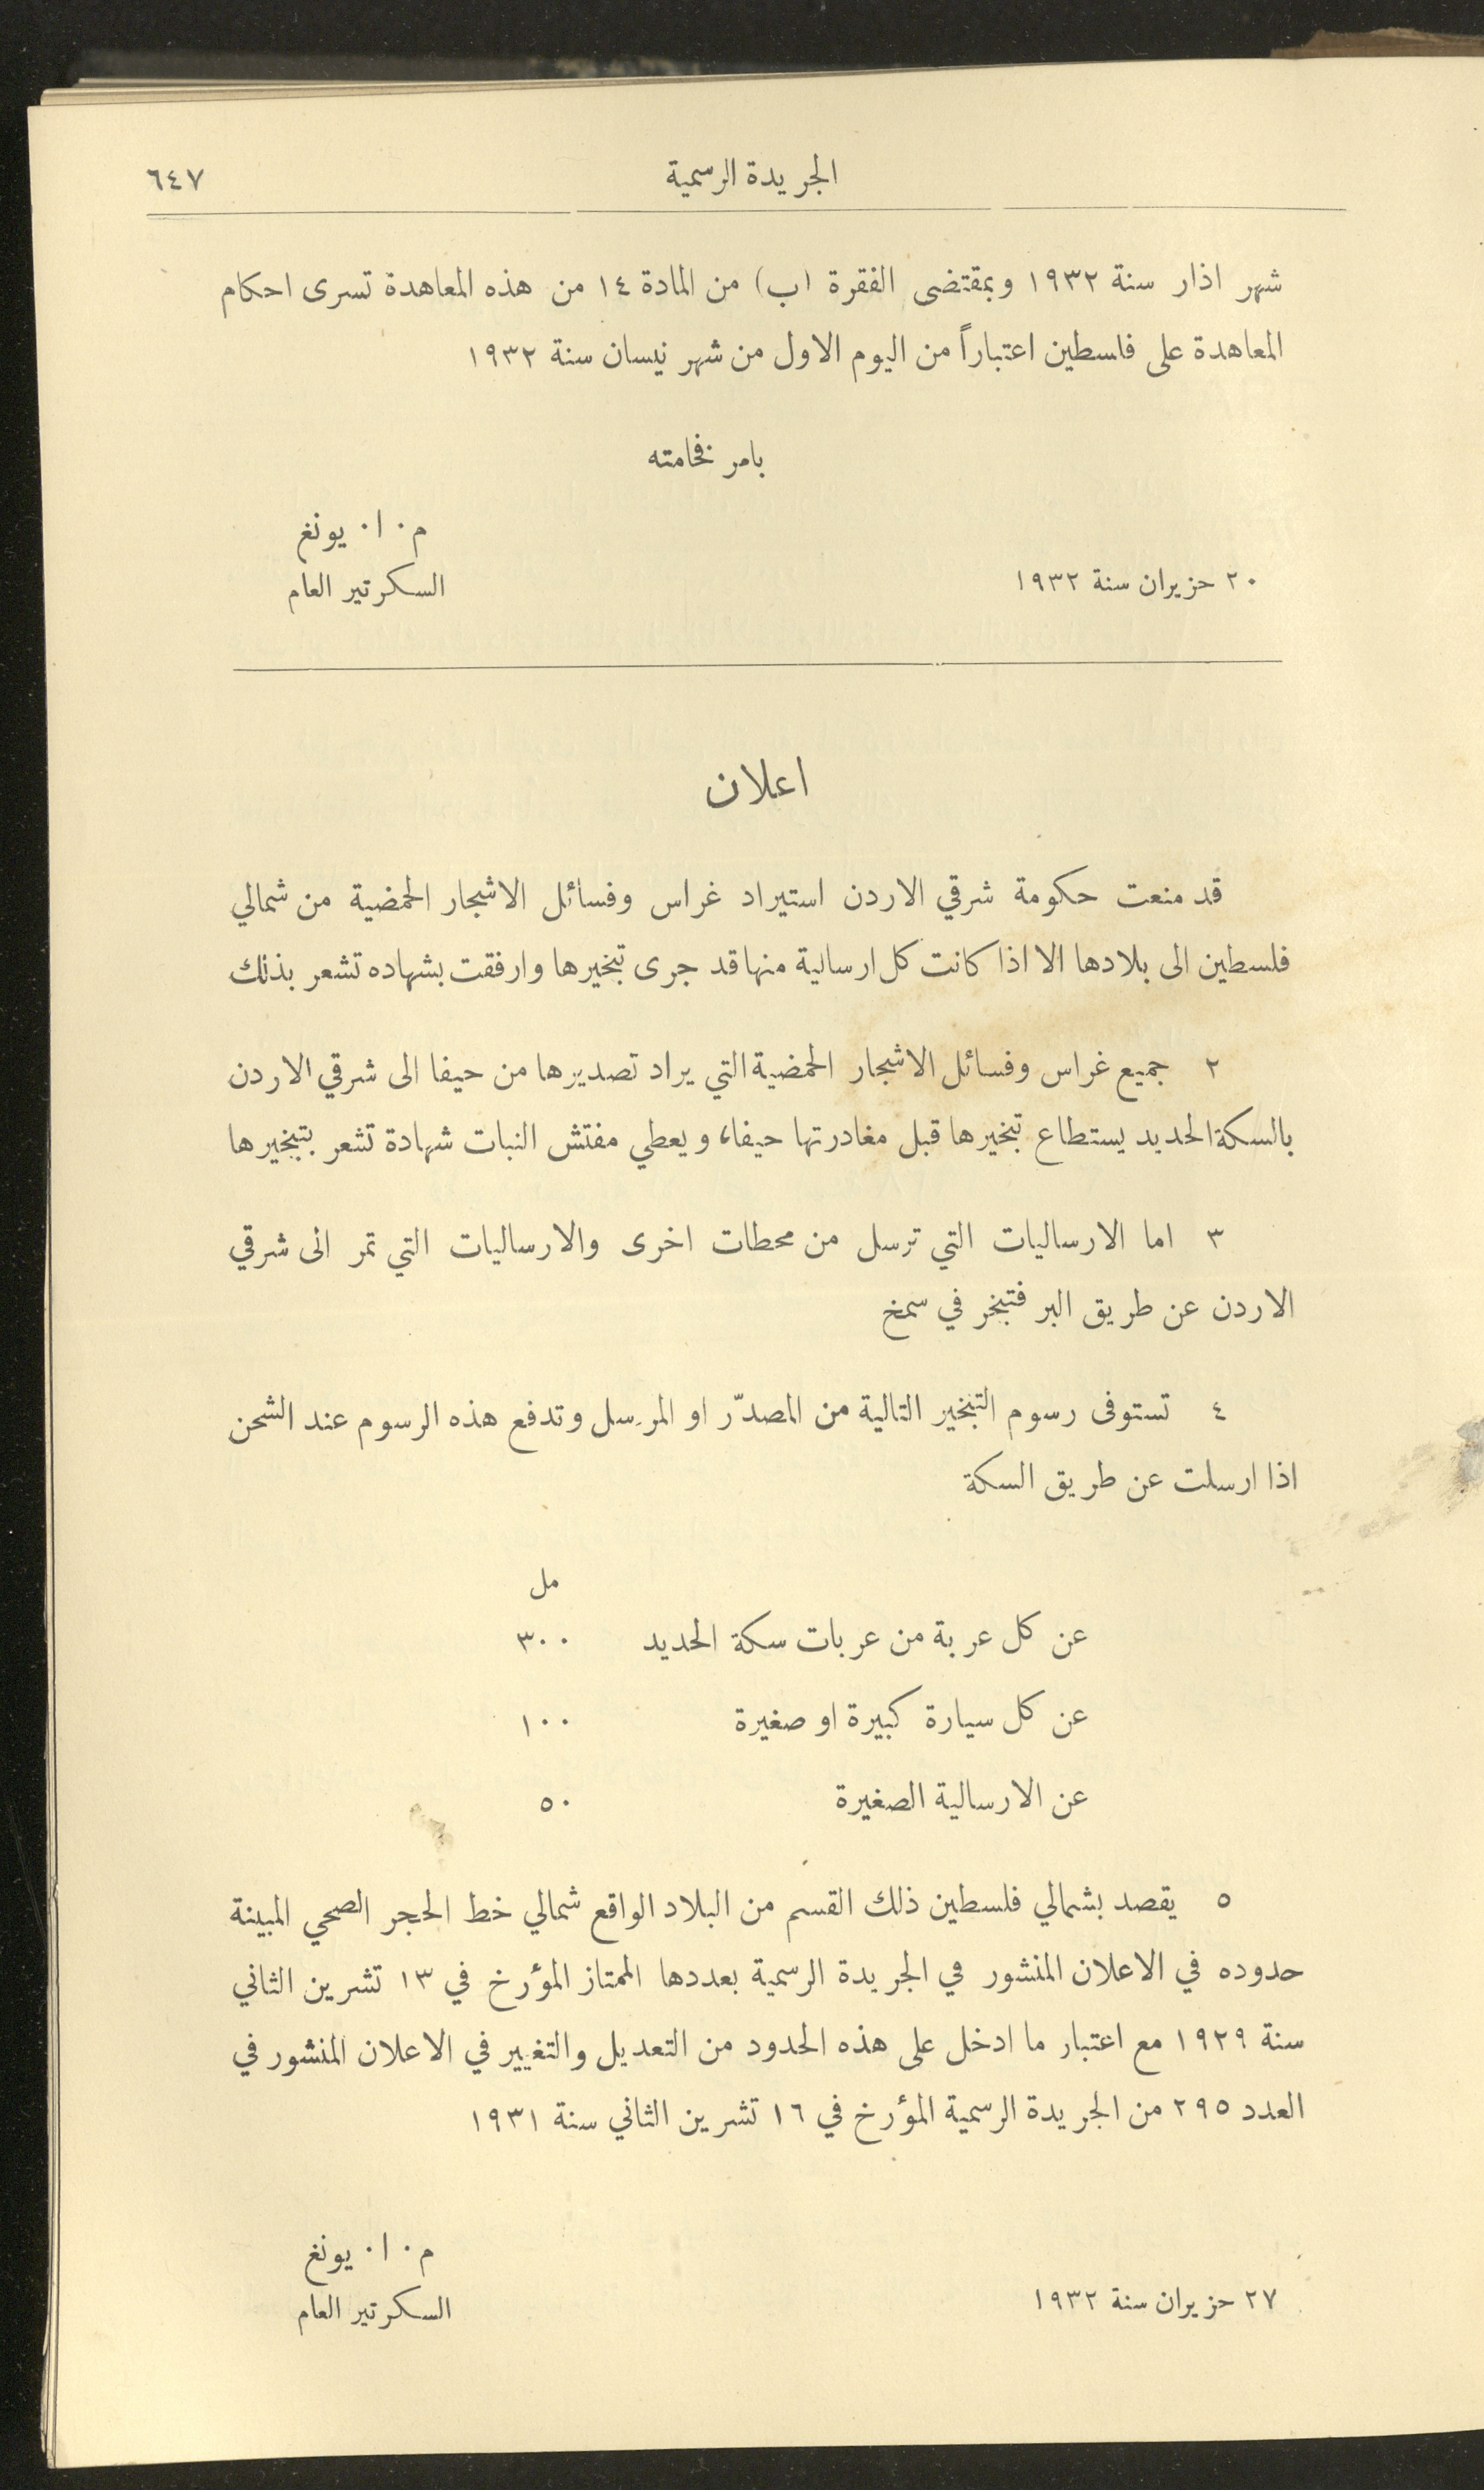 الجريدة الرسمية
٦٤٧
شهر اذار سنة ١٩٣٢ وبمقتضى الفقرة (ب) من المادة ١٤ من هذه المعاهدة تسرى احكام
المعاهدة على فلسطين اعتباراً من اليوم الاول من شهر نيسان سنة ١٩٣٢
بامر فخامته
م٠ ا٠ يونغ
٢٠ حزيران سنة ١٩٣٢
السكرتير العام
اعلان
قد منعت حكومة شرقي الاردن استيراد غراس وفسائل الاشجار الحمضية من شمالي
فلسطين الى بلادها الا اذا كانت كل ارسالية منها قد جرى تبخيرها وارفقت بشهاده تشعر بذلك
٢ جميع غراس وفسائل الاشجار الحمضية التي يراد تصديرها من حيفا الى شرقي الاردن
بالسكة الحديد يستطاع تبخيرها قبل مغادرتها حيفا، ويعطي مفتش النبات شهادة تشعر بتبخيرها
٣ اما الارساليات التي ترسل من محطات اخرى والارساليات التي تمر الى شرقي
الاردن عن طريق البر فتبخر في سمخ
٤ تستوفى رسوم التبخير التالية من المصدّر او المرسل وتدفع هذه الرسوم عند الشحن
اذا ارسلت عن طريق السكة
مل
عن كل عربة من عربات سكة الحديد ٣٠٠
عن كل سيارة كبيرة او صغيرة ١٠٠
عن الارسالية الصغيرة ٥٠
٥ يقصد بشمالي فلسطين ذلك القسم من البلاد الواقع شمالي خط الحجر الصحي المبينة
حدوده في الاعلان المنشور في الجريدة الرسمية بعددها الممتاز المؤرخ في ١٣ تشرين الثاني
سنة ١٩٢٩ مع اعتبار ما ادخل على هذه الحدود من التعديل والتغيير في الاعلان المنشور في
العدد ٢٩٥ من الجريدة الرسمية المؤرخ في ١٦ تشرين الثاني سنة ١٩٣١
م٠ ا٠ يونغ
٢٧ حزيران سنة ١٩٣٢
السكرتير العام